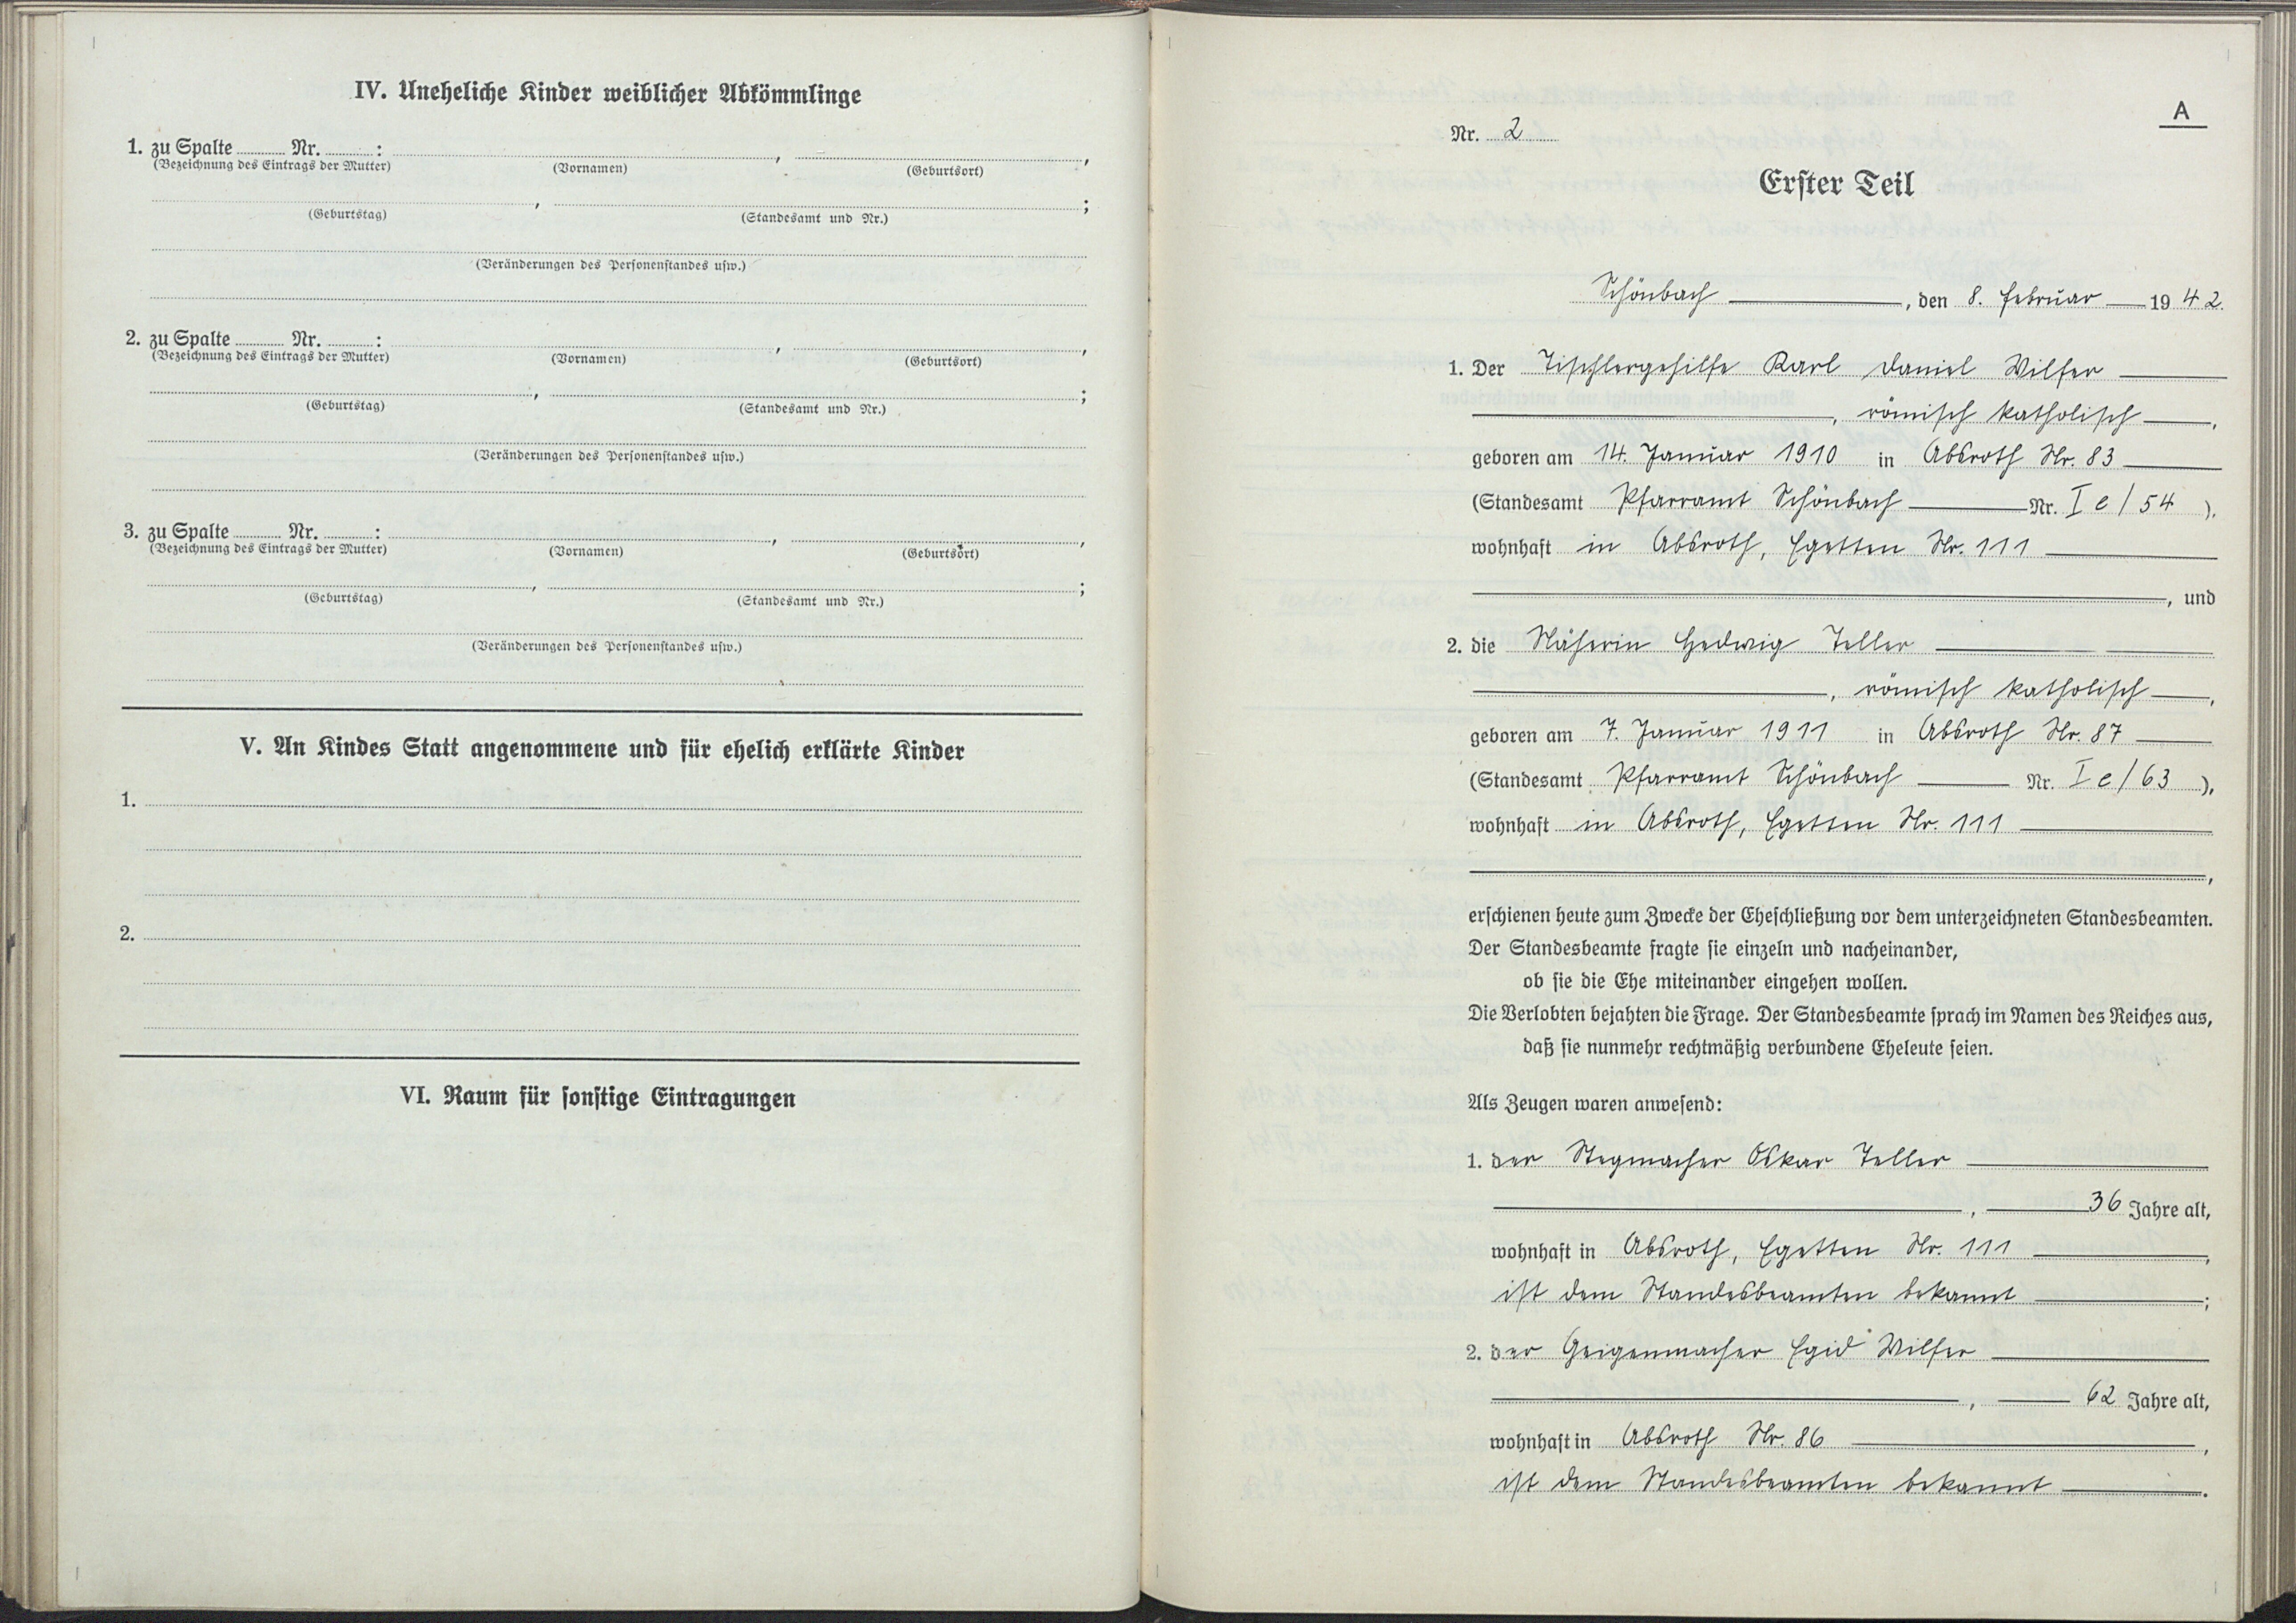 IV. Uneheliche Kinder weiblicher Abkömmlinge
1. zu Spalte ........ Nr. ........ : , ,
(Bezeichnung des Eintrags der Mutter) (Vornamen) (Geburtsort)
, ;
(Geburtstag) (Standesamt und Nr.)
(Veränderungen des Personenstandes usw.)
2. zu Spalte ........ Nr. ........ : , ,
(Bezeichnung des Eintrags der Mutter) (Vornamen) (Geburtsort)
, ;
(Geburtstag) (Standesamt und Nr.)
(Veränderungen des Personenstandes usw.)
3. zu Spalte ........ Nr. ........ : , ,
(Bezeichnung des Eintrags der Mutter) (Vornamen) (Geburtsort)
, ;
(Geburtstag) (Standesamt und Nr.)
(Veränderungen des Personenstandes usw.)
V. An Kindes Statt angenommene und für ehelich erklärte Kinder
1.
2.
VI. Raum für sonstige Eintragungen
A
Nr. 2
Erster Teil
Schönbach, den 8. Februar 1942.
1. Der Tischlergehilfe Karl Daniel Wilfer
, römisch katholisch,
geboren am 14. Januar 1910 in Absroth Nr. 83
(Standesamt Pfarramt Schönbach Nr. I e/54 ),
wohnhaft in Absroth, Egetten Nr. 111
, und
2. die Näherin Hedwig Teller
, römisch katholisch,
geboren am 7. Januar 1911 in Absroth Nr. 87
(Standesamt Pfarramt Schönbach Nr. I e/63 ),
wohnhaft in Absroth, Egetten Nr. 111
,
erschienen heute zum Zwecke der Eheschließung vor dem unterzeichneten Standesbeamten.
Der Standesbeamte fragte sie einzeln und nacheinander,
ob sie die Ehe miteinander eingehen wollen.
Die Verlobten bejahten die Frage. Der Standesbeamte sprach im Namen des Reiches aus,
daß sie nunmehr rechtmäßig verbundene Eheleute seien.
Als Zeugen waren anwesend:
1. der Stegmacher Oskar Teller
, 36 Jahre alt,
wohnhaft in Absroth, Egetten Nr. 111,
ist dem Standesbeamten bekannt;
2. der Geigenmacher Egid Wilfer
, 62 Jahre alt,
wohnhaft in Absroth Nr. 86,
ist dem Standesbeamten bekannt.